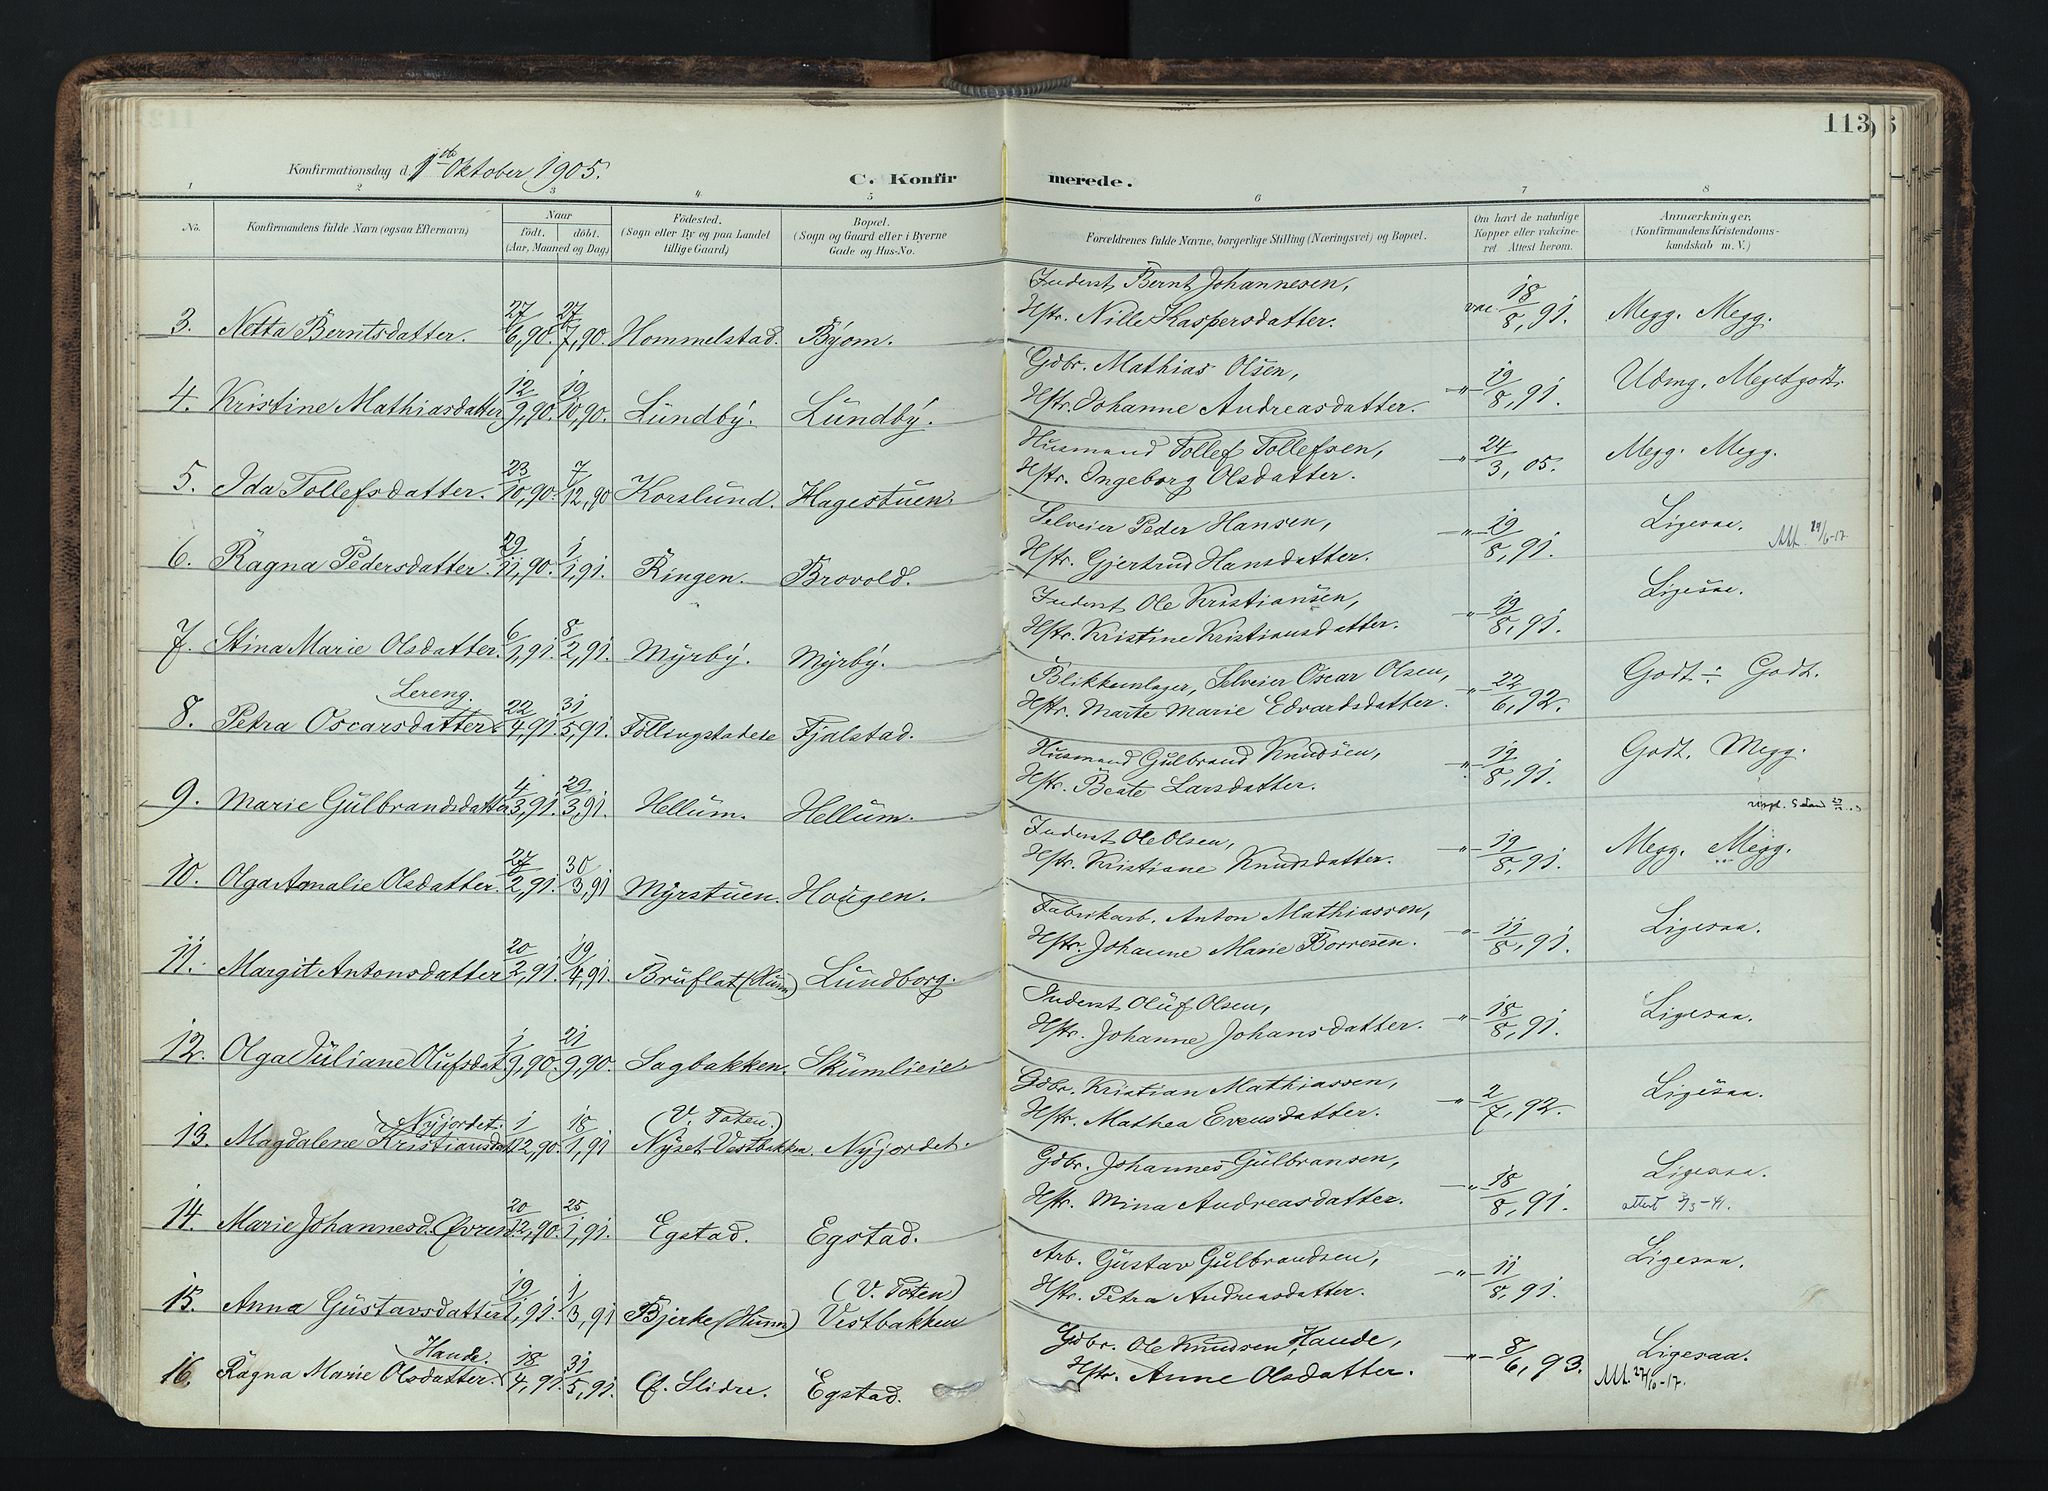 113
Konfirmationsdag d. 1ste Oktober 1905.
C. Konfirmerede.
1 2 3 4 5 6 7 8
No. Konfirmandens fulde Navn (ogsaa Efternavn) Naar födt. döbt. (Aar, Maaned og Dag) Födested. (Sogn eller By og paa Landet tillige Gaard) Bopæl. (Sogn og Gaard eller i Byerne Gade og Hus-No. Forældrenes fulde Navne, borgerlige Stilling (Næringsvei) og Bopæl. Om havt de naturlige Kopper eller vaccineret. Attest herom. Anmærkninger. (Konfirmandens Kristendomskundskab m. V.)
Inderst Bernt Johannesen,
3. Netta Berntsdatter. 27/6,90. 27/7,90. Hommelstad. Byom. Hstr. Nille Kaspersdatter. vac 18/8,91. Megg. Megg.
Gdbr. Mathias Olsen,
4. Kristine Mathiasdatter 12/9,90. 19/10,90. Lundby. Lundby. Hstr. Johanne Andreasdatter. -"- 19/8,91. Udmg. Megetgodt.
Husmand Tollef Tollefsen,
5. Ida Tollefsdatter. 23/10,90. 7/12,90 Korslund. Hagestuen. Hstr. Ingeborg Olsdatter. -"- 24/3,05. Megg. Megg.
Selveier Peder Hansen,
6. Ragna Pedersdatter. 29/11,90. 1/1,91. Ringen. Brovold. Hstr. Gjertrud Hansdatter. -"- 19/8,91. Ligesaa. Att. 29/6-17.
Inderst Ole Kristiansen,
7. Stina Marie Olsdatter. 6/1,91. 8/2,91. Myrby. Myrby. Hstr. Kristine Kristiansdatter. -"- 19/8,91. Ligesaa.
Lereng. Blikkenslager, Selveier Oscar Olsen,
8. Petra Oscarsdatter. 22/4,91. 31/5,91. Fjalstad. Hstr. Marte Marie Edvardsdatter. -"- 22/6,92. Godt ÷ Godt.
Husmand Gulbrand Knudsen,
9. Marie Gulbrandsdatter 4/3,91. 29/3,91. Hellum. Hellum. Hstr. Beate Larsdatter. -"- 19/8,91. Godt. Megg.
Inderst Ole Olsen,
10. Olga Amalie Olsdatter. 27/2,91. 30/3,91 Myrstuen. Hougen. Hstr. Kristiane Knudsdatter. -"- 19/8,91. Megg. Megg.
Fabrikarb. Anton Mathiassen,
11. Margit Antonsdatter 20/2,91. 19/4,91. Bruflat (Hunn) Lundborg. Hstr. Johanne Marie Borresen. -"- 11/8,91. Ligesaa.
Inderst Oluf Olsen,
12. Olga Juliane Olufsdat. 1/9,90. 21/9,90. Sagbakken. Skumlieie. Hstr. Johanne Johansdatter. -"- 18/8,91. Ligesaa.
Nyjordet. (V. Toten.) Gdbr. Kristian Mathiassen,
13. Magdalene Kristiansdat. 1/12,90. 18/1,91 Nyset Vestbakken. Nyjordet. Hstr. Mathea Evensdatter. -"- 2/7,92. Ligesaa.
Gdbr. Johannes Gulbransen,
14. Marie Johannesd. Øvren 20/12,90. 25/1,91. Egstad. Egstad. Hstr. Mina Andreasdatter. -"- 18/8,91. Ligesaa.
(V. Toten) Arb. Gustav Gulbrandsen,
15. Anna Gustavsdatter 19/1,91. 1/3,91 Bjerke (Hunn) Vestbakken Hstr. Petra Andreasdatter. -"- 11/8,91. Ligesaa.
Haude. Gdbr. Ole Knudsen Haude,
16. Ragna Marie Olsdatter. 18/4,91. 31/5,91. Ø. Slidre. Egstad. Hstr. Anne Olsdatter. -"- 8/6,93. Ligesaa. Att. 27/10-17.